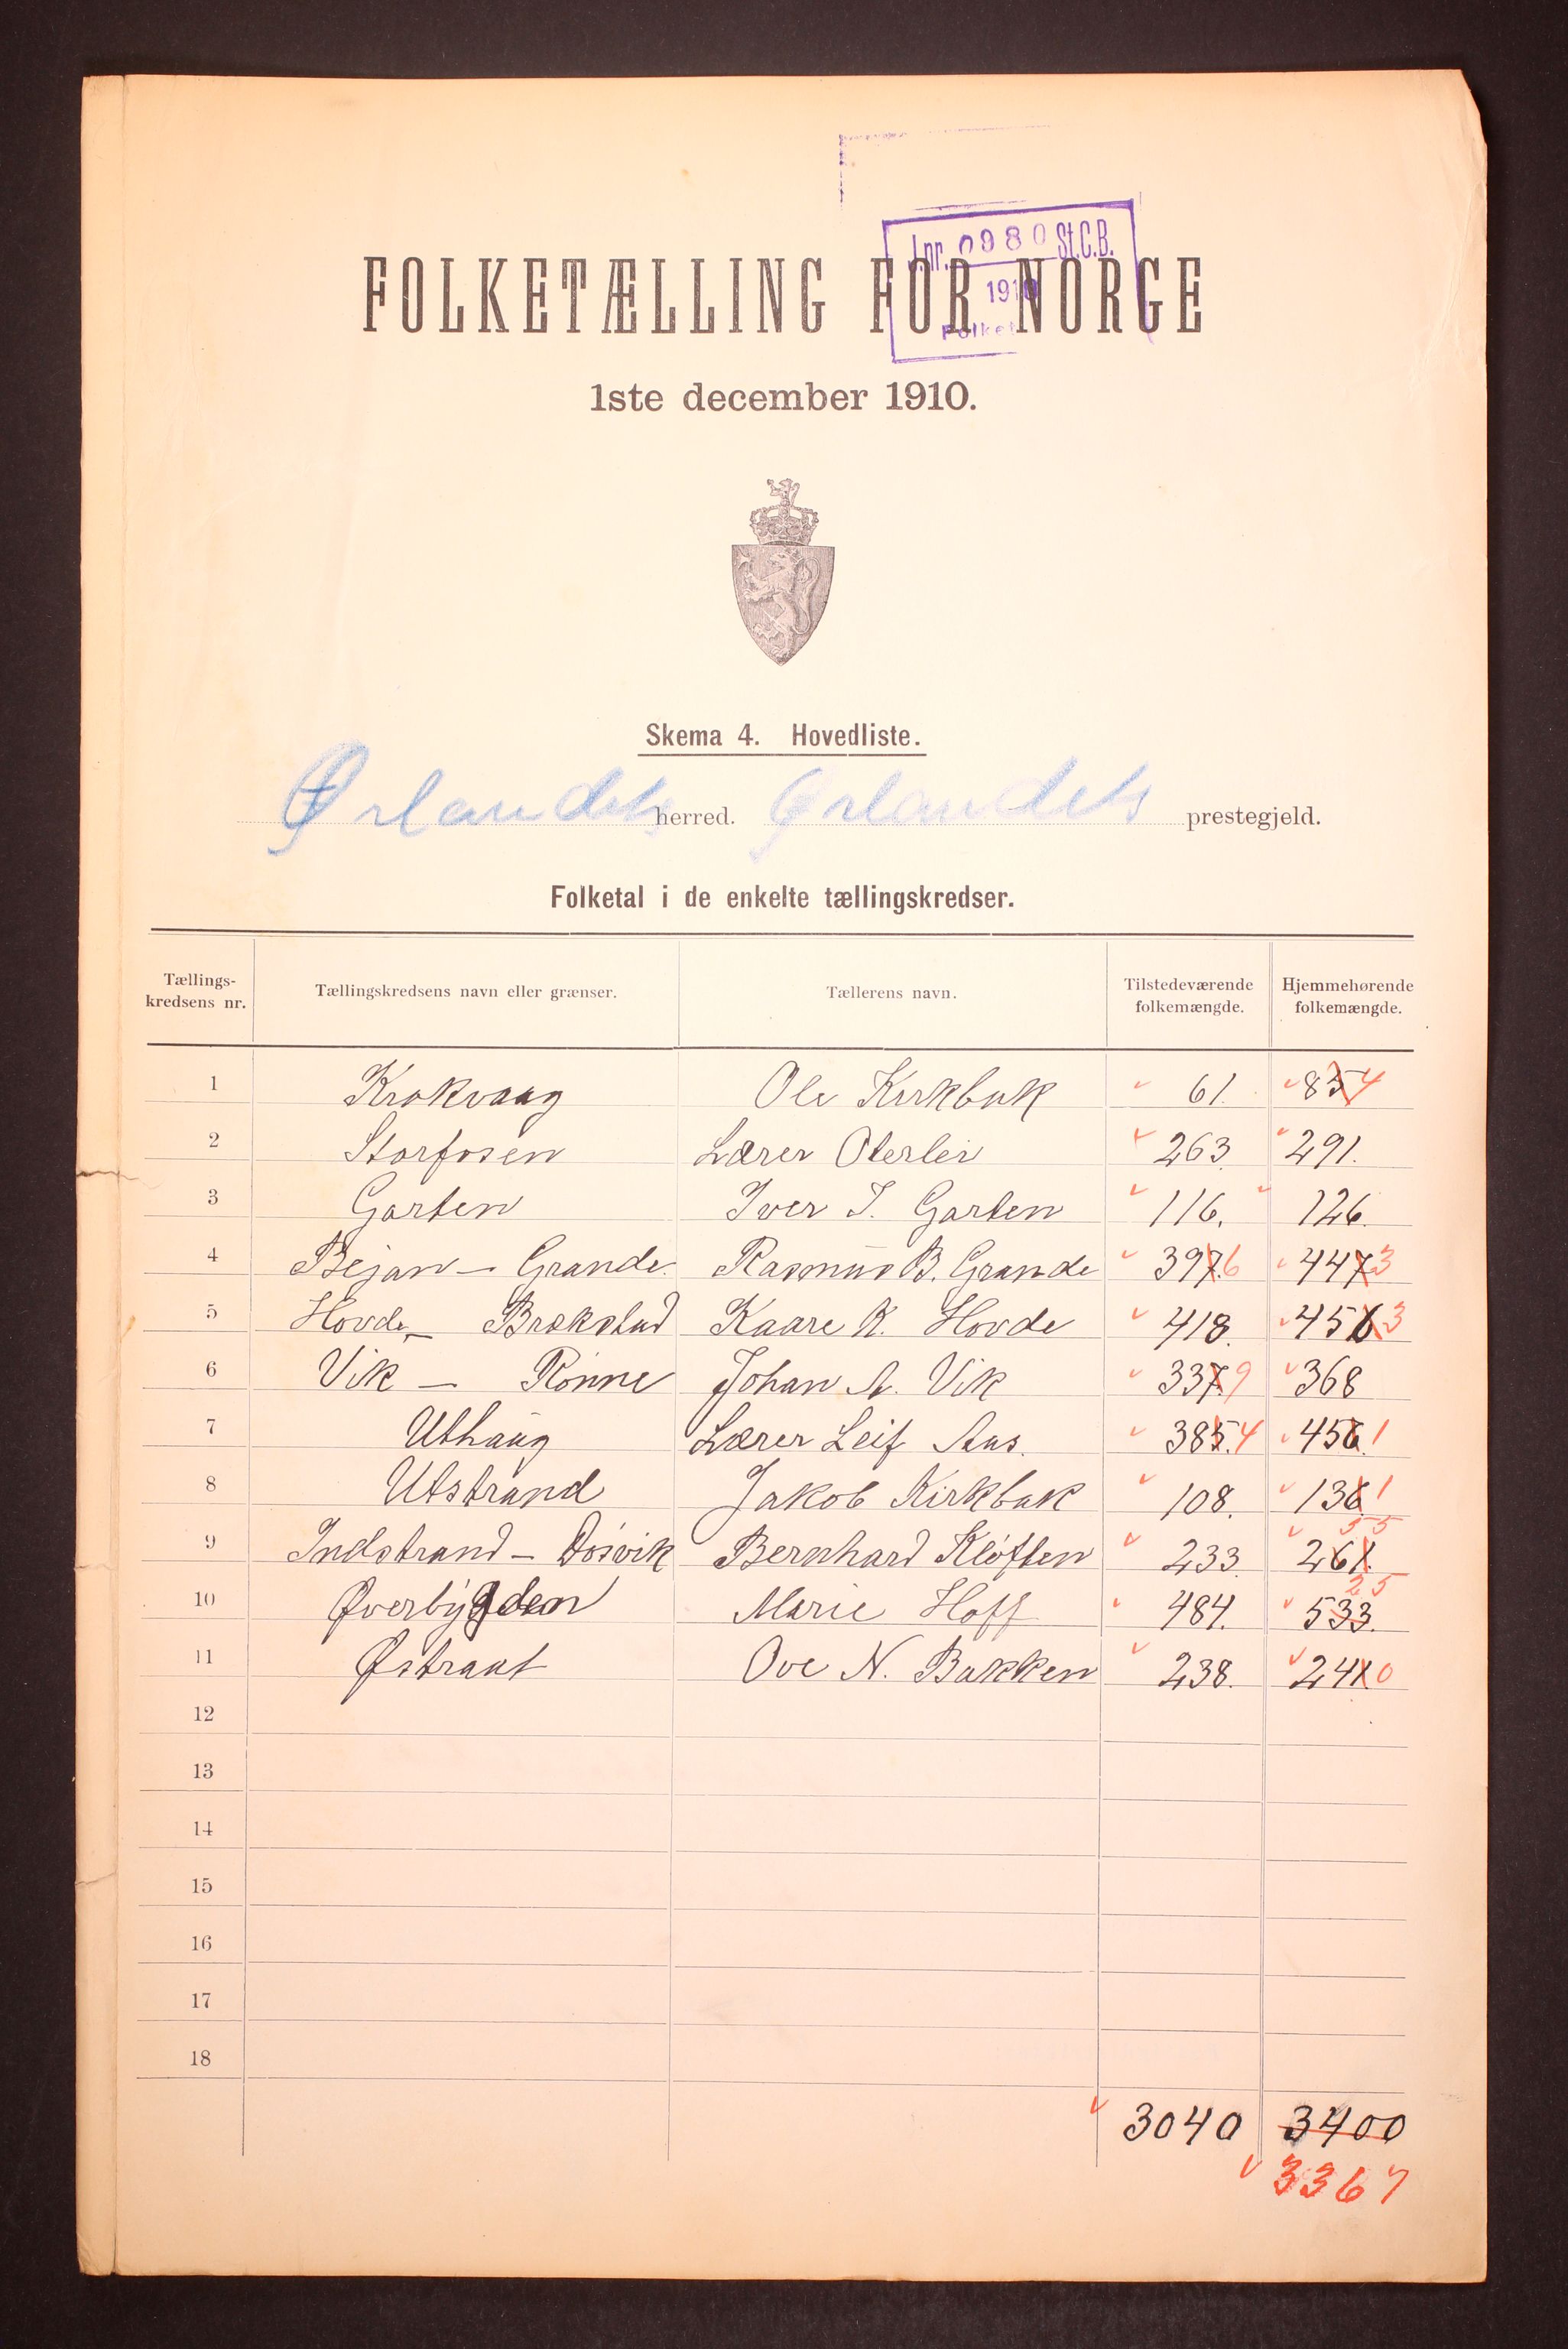 J.nr. 0980 St.C.B.
1910
Folket
FOLKETÆLLING FOR NORGE
1ste december 1910.
Skema 4. Hovedliste.
Ørlandets herred. Ørlandets prestegjeld.
Folketal i de enkelte tællingskredser.
Tællings-kredsens nr. Tællingskredsens navn eller grænser. Tællerens navn. Tilstedeværende folkemængde. Hjemmehørende folkemængde.
1 Krokvaag Ole Kirkbak 61. 85 4
2 Storfosen Lærer Oterlei 263. 291.
3 Garten Iver J. Garten 116. 126.
4 Bejan - Grande. Rasmus B. Grande 397. 6 447 3
5 Hovde - Brekstad Kaare K. Hovde 418. 456 3
6 Vik - Rønne Johan A. Vik 337. 9 368
7 Uthaug Lærer Leif Aas. 385. 4 456. 1
8 Utstrand Jakob Kirkbak 108. 136. 1
9 Indstrand - Døsvik Bernhard Kløften 233. 261. 55
10 Øverbygden Marie Hoff 484. 533. 25
11 Østraat Ove N. Bakken 238. 241 0
12
13
14
15
16
17
18
3040 3400
3367